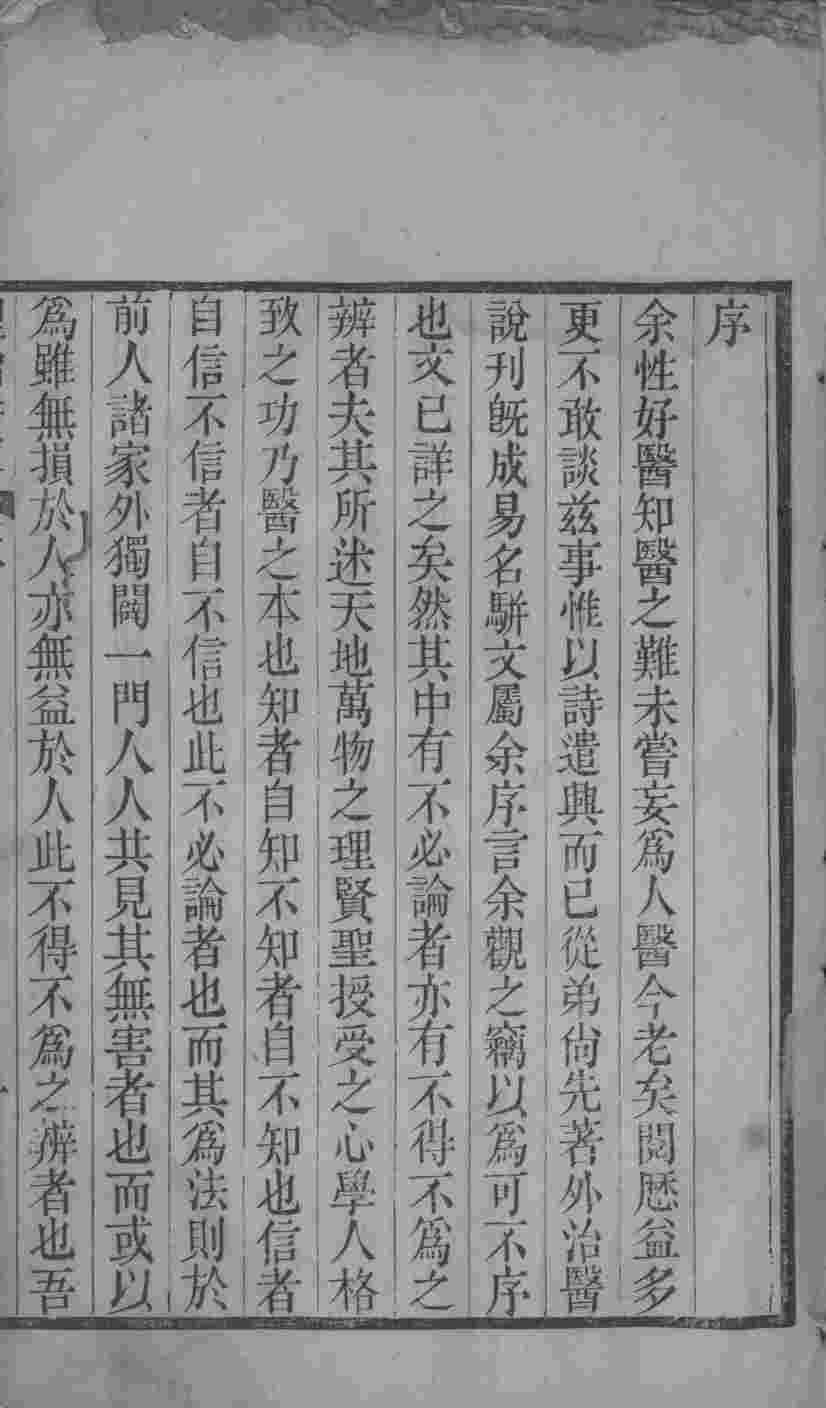 序
余性好醫知醫之難未嘗妄爲人醫今老矣閱歷益多
更不敢談兹事惟以詩遣興而已從弟尙先著外治醫
說刊既成易名騈文屬余序言余觀之竊以爲可不序
也文已詳之矣然其中有不必論者亦有不得不爲之
辨者夫其所述天地萬物之理賢聖授受之心學人格
致之功乃醫之本也知者自知不知者自不知也信者
自信不信者自不信也此不必論者也而其爲法則於
前人諸家外獨闢一門人人共見其無害者也而或以
爲雖無損於人亦無益於人此不得不爲之辨者也吾